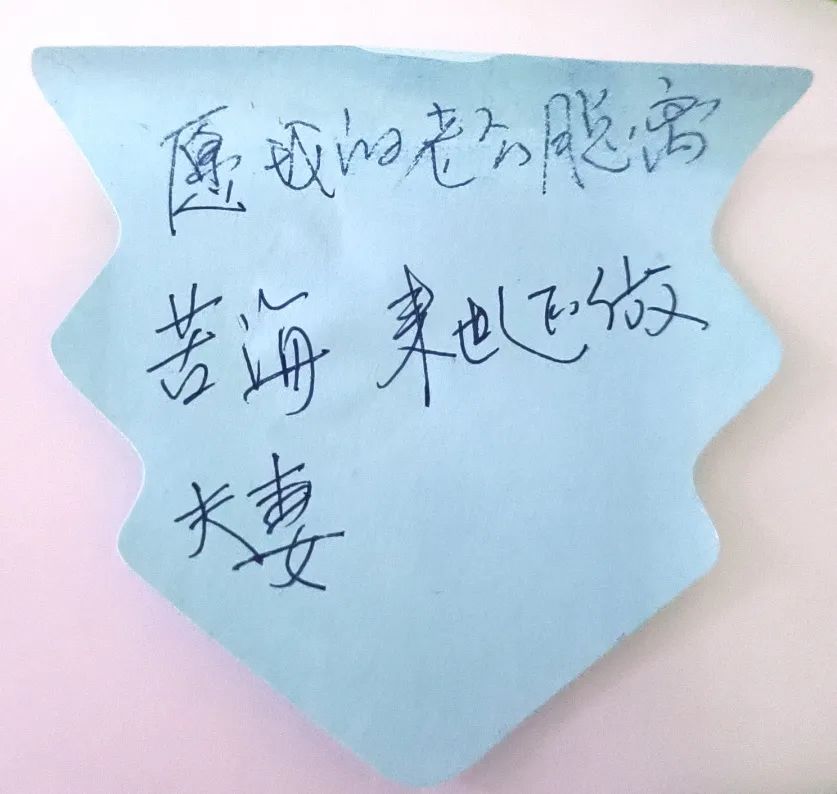 愿我的老公脱离
苦海 来世还做
夫妻